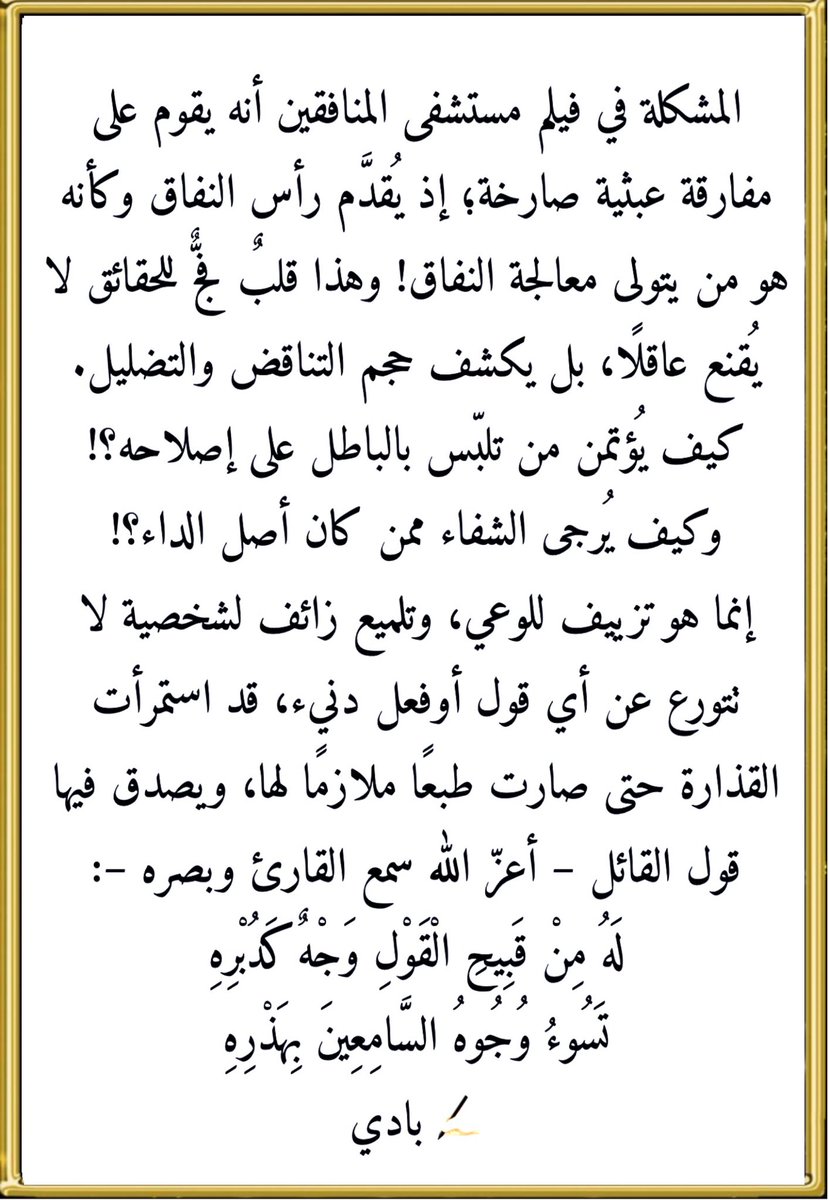 المشكلة في فيلم مستشفى المنافقين أنه يقوم على
مفارقة عبثية صارخة؛ إذ يُقدَّم رأس النفاق وكأنه
هو من يتولى معالجة النفاق! وهذا قلبٌ فجٌّ للحقائق لا
يُقنع عاقلًا، بل يكشف حجم التناقض والتضليل.
كيف يُؤتمن من تلبّس بالباطل على إصلاحه؟!
وكيف يُرجى الشفاء ممن كان أصل الداء؟!
إنما هو تزييف للوعي، وتلميع زائف لشخصية لا
تتورع عن أي قول أوفعل دنيء، قد استمرأت
القذارة حتى صارت طبعًا ملازمًا لها، ويصدق فيها
قول القائل – أعزّ الله سمع القارئ وبصره –:
لَهُ مِنْ قَبِيحِ الْقَوْلِ وَجْهٌ كَدُبْرِهِ
تَسُوءُ وُجُوهُ السَّامِعِينَ بِهَذْرِهِ
بادي